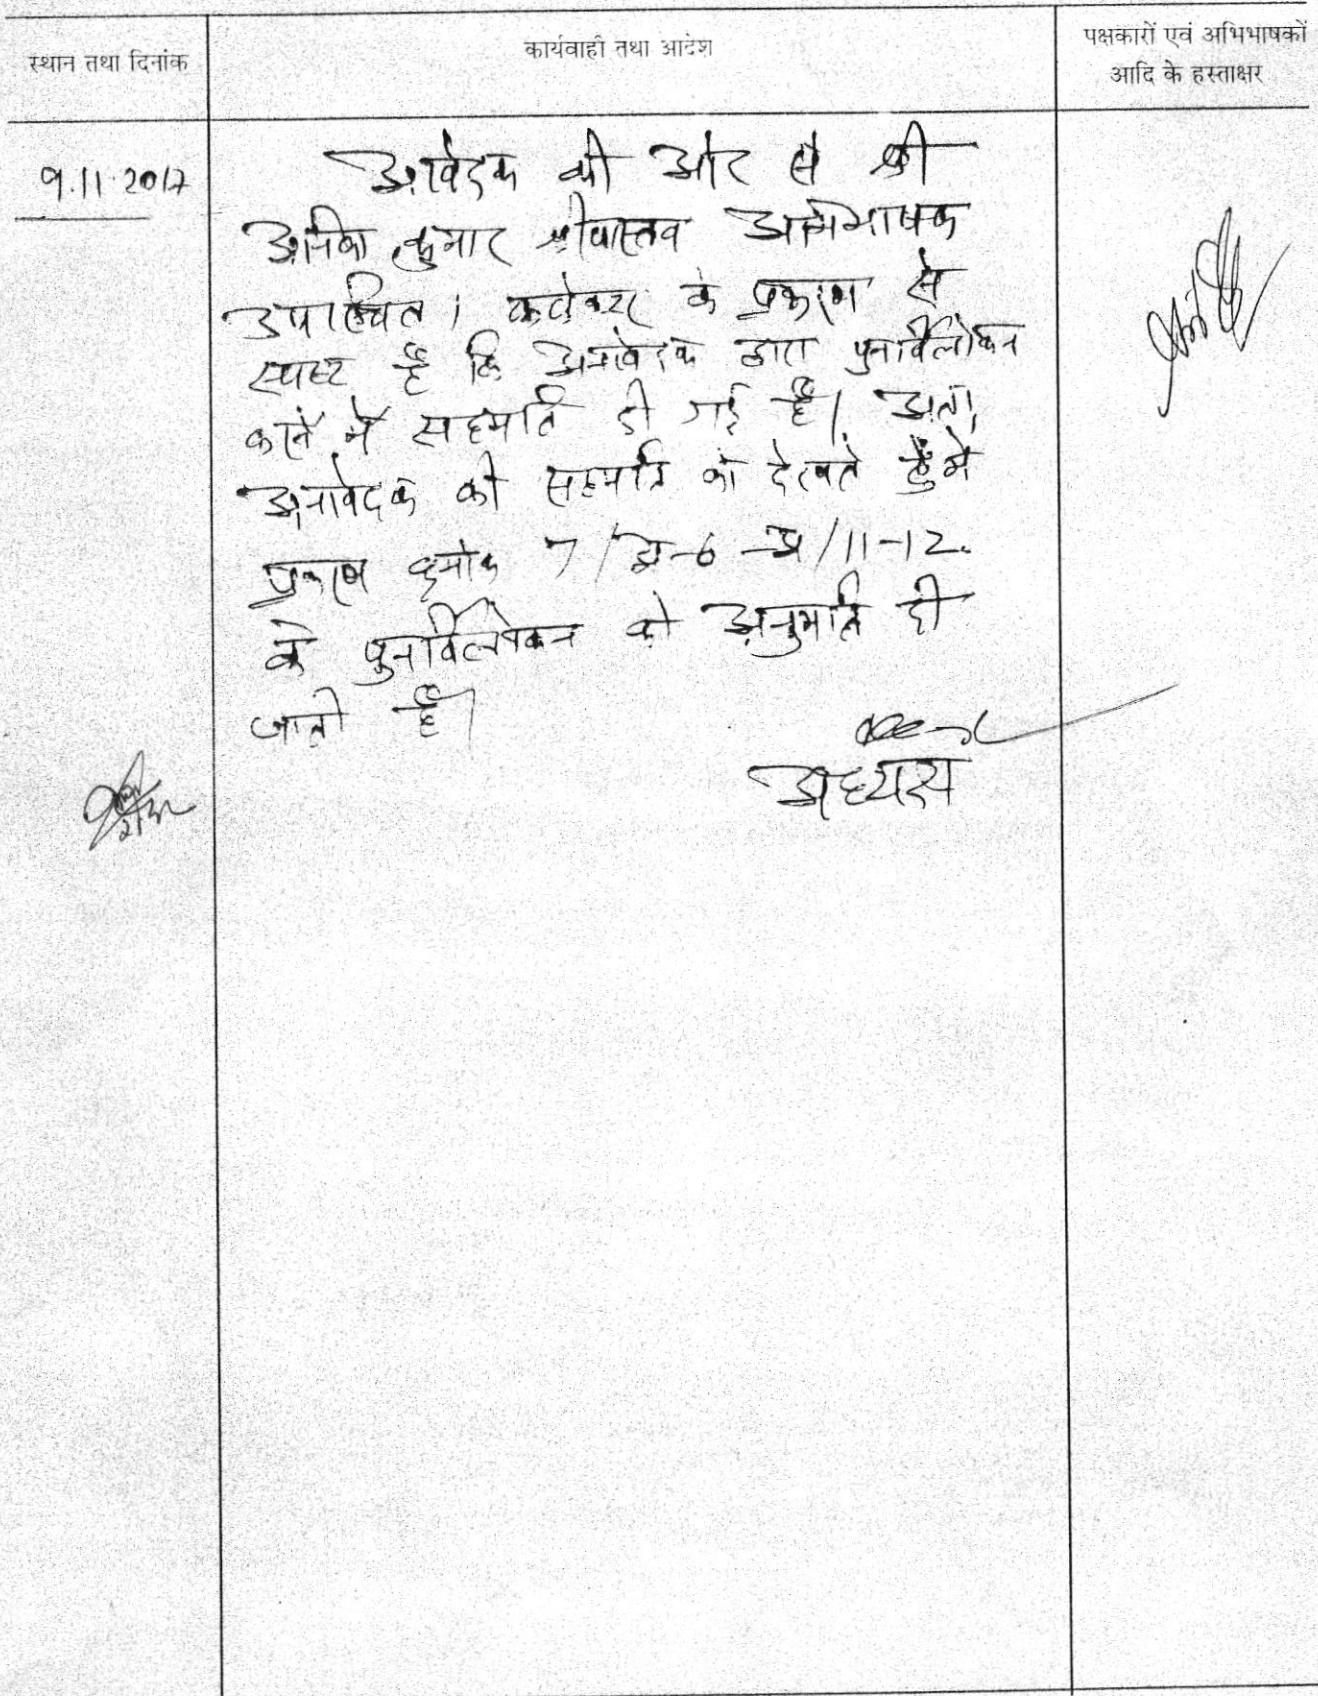 स्थान तथा दिनांक
कार्यवाही तथा आदेश
पक्षकारों एवं अभिभाषकों
आदि के हस्ताक्षर
9.11.2017
आवेदक की ओर से श्री
कुमार श्रीवास्तव अभिभाषक
उपस्थित। कलेक्टर के प्रकरण से
स्पष्ट है कि अनावेदक द्वारा पुनर्विलोकन
करने में सहमति दी गई है। अतः
अनावेदक की सहमति को देखते हुये
प्रकरण क्रमांक 7/अ-6-अ/11-12
के पुनर्विलोकन की अनुमति दी
जाती है।
अध्यक्ष